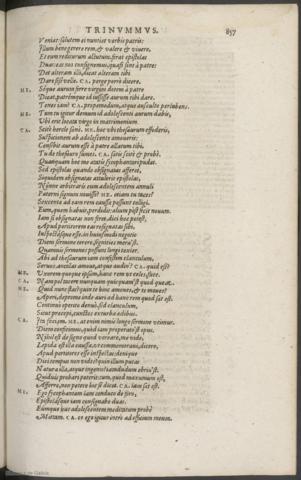 TRINVMMVS. 857
Veniat: salutem ei nuntiet verbis patris:
Illum bene gerere rem, & valere & vivere,
Et eum rediturum actutum. ferat epistolas
Duas: eas nos consignemus, quasi sint à patre:
Det alteram illi, dicat alteram tibi
Dare sese velle. CA. perge porrò dicere.
ME. Seque aurum ferre virgini dotem à patre
Dicat, patremque id iussisse aurum tibi dare.
Tenes iam? CA. propemodum, atque ausculto perlubens.
ME. Tum tu igitur demum id adolescenti aurum dabis,
Vbi erit locata virgo in matrimonium.
CA. Scitè hercle sanè. ME. hoc vbi thesaurum effoderis,
Suspicionem ab adolescente amoveris:
Censebit aurum esse à patre allatum tibi.
Tu de thesauro sumes. CA. satis scitè & probè.
Quanquam hoc me aetatis sycophantari pudet.
Sed epistolas quando obsignatas afferet,
Sed quom obsignatas attulerit epistolas,
Nonne arbitraris eum adolescentem annuli
Paterni signum novisse? ME. etiam tu taces?
Sexcentae ad eam rem causae possunt colligi.
Eum, quem habuit, perdidit: alium post fecit novum.
Iam si obsignatas non feret, dici hoc potest,
Apud portitorem eas resignatas sibi,
Inspectasque esse. in huiusmodi negotio
Diem sermone terere, segnities mera'st.
Quamvis sermones possunt longi texier.
Abi ad thesaurum iam confestim clanculum,
Servos, ancillas amove, atque audin'? CA. quid est?
ME. Vxorem quoque ipsam, hanc rem vt celes, face.
CA. Nam pol tacere nunquam quicquam'st quod queat.
ME. Quid nunc stas? quin tu hinc amoves, & te moves?
Aperi, deprome inde auri ad hanc rem quod sat est.
Continuò operito denuò, sed clanculum,
Sicut praecepi, cunctos exturba aedibus.
CA. Ita faciam. ME. at enim nimis longo sermone vtimur.
Diem conficimus, quod iam properato'st opus.
Nihil est de signo quod vereare, me vide,
Lepida est illa causa, vt commemoravi, dicere,
Apud portitores esse inspectas: denique
Diei tempus non vides? quid illum putas
Natura illa, atque ingenio? iamdudum ebrius'st.
Quidvis probari poterit: tum, quod maxumum est,
Afferre, non petere hic se dicet. CA. iam sat est.
ME. Ego sycophantam iam conduco de foro,
Epistolasque iam consignabo duas.
Eumque huc ad adolescentem meditatum probè
Mittam. CA. eo ego igitur intrò ad officium meum.